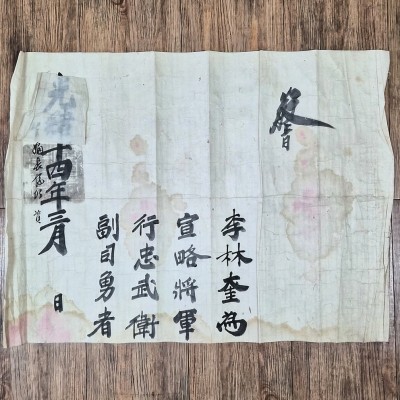 敎旨
李林奎爲
宣略將軍
行忠武衛
副司勇者
光緖十四年三月 日